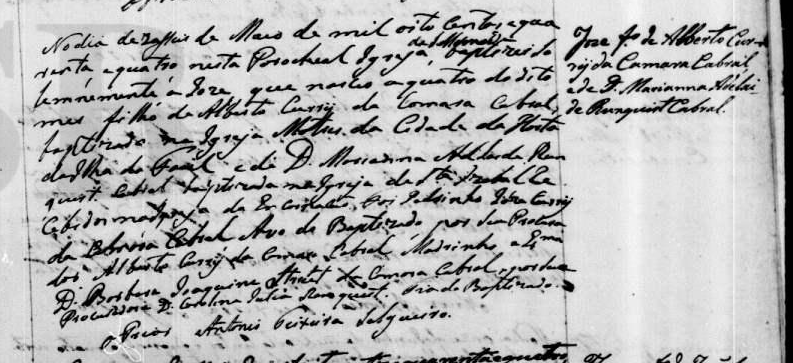 No dia dezasseis de Maio de mil oito centos, e qua
renta e quatro nesta Parochial Igreja, de S. Mamede baptizei so
lemnemente a Joze, que nasceo a quatro do dito
mes filho de Alberto Curry da Camara Cabral,
baptizado na Igreja Matris da Cidade da Horta
da Ilha do Faial e de D. Marianna Adelaide Ron
quist Cabral baptizada na Igreja de Sta Izabel Re
cebidos na Igreja da Foi Padrinho Joze Curry
da Camara Cabral Avo do Baptizado por seu Procura
dor Alberto Curry da Camara Cabral Madrinha a Exma
D. Barbara Joaquina Street da Camara Cabral, por sua
Procuradora D. Carolina Julia Ronquist. tia do Baptizado.
o Prior Antonio Teixeira Salgueiro.
Joze fo de Alberto Cur-
ry da Camara Cabral
e de D. Marianna Adelai
de Runquist Cabral.